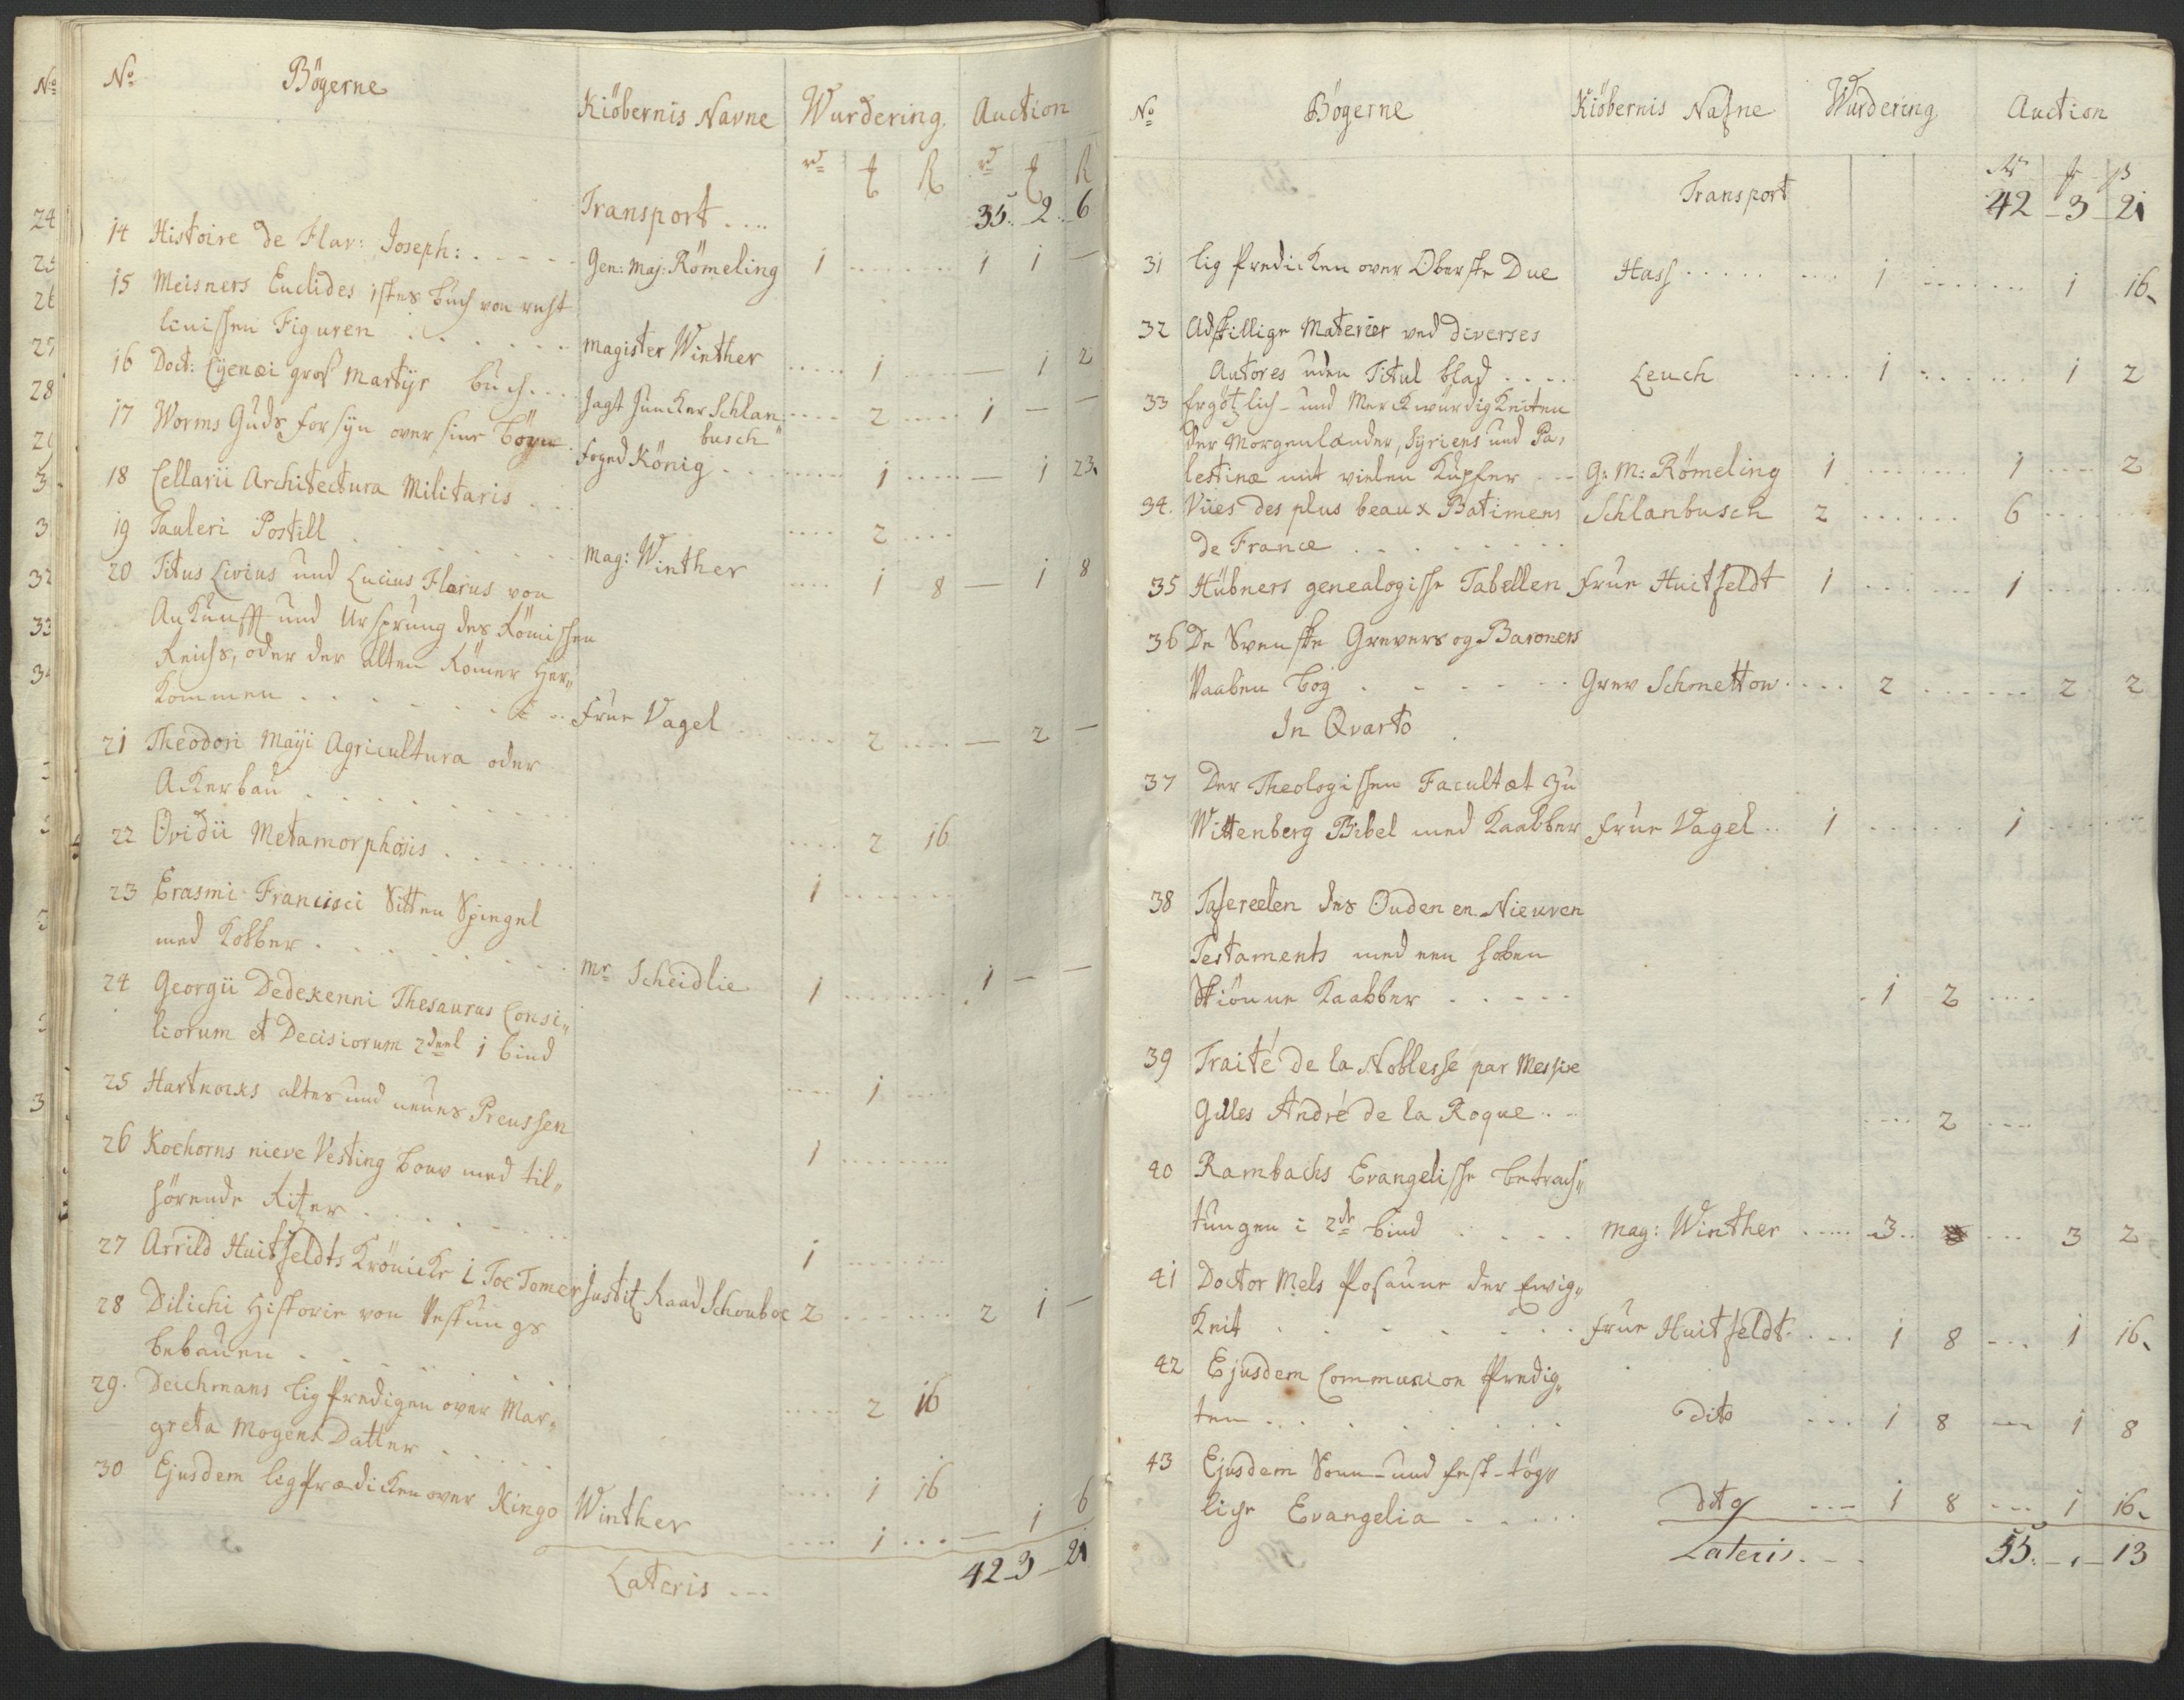 No Bögerne Kiöbernis Navne Wurdering. Auction
rd ț ß rd ț ß
Transport .... 35. 2. 6
14 Histoire de Flav: Joseph: ..... Gen: Maj: Römeling 1 ....... 1 1 —
15 Meisners Euclides istes buch von recht
linischen Figuren ...... Magister Winther ..... 1 ..... — 1 2
16 Doct: Cyenæi gros Martyr buch ... Jagt Juncker Schlan
busch" .... 2 ..... 1 — —
17 Worms Guds forsyn over sine börn foged König ....... 1 ..... — 1 23
18 Cellarii Architectura Militaris ... .... 2 ....
19 Tauleri Postill ....... Mag: Winther .... 1 8 — 1 8
20 Titus Livius und Lucius Florus von
Ankunfft und Ursprung des Römischen
Reichs, oder der alten Römer Her„
kommen ....... Frue Vagel ..... 2 .... — 2 —
21 Theodori Mayi Agricultura oder
Ackerbau ........ .... 2 16
22 Ovidii Metamorphosis ....... 1 .......
23 Erasmi Francisci Sitten Spiegel
med Kobber ........ Mr Scheidlie 1 ....... 1 — —
24 Georgii Dedekenni Thesaurus Consi„
liorum et Decisiorum 2 deel i bind .... 1 ....
25 Hartnocks altes und neues Preussen 1 .......
26 Koehorns nieve Vesting bouw med til„
hörende Ritzer ....... 1 .......
27 Arrild Huitfeldts Krönicke i Toe Tomer Justitz Raad Schouboe 2 ....... 2 1 —
28 Dilichi Historie von Vestungs
bebauen ....... ..... 2 16
29. Deichmans ligPredigen over Mar„
greta Mogens Datter ..... .... 1 16
30 Ejusdem ligPrædicken over Kingo Winther .... 1 ... — 1 6
Lateris --- 42 - 3 - 21
No Bögerne Kiöbernis Nafne Wurdering Auction
Transport 42 - 3 - 21
31 lig Predicken over Oberste Due Hass ..... .... 1 ....... 1 16
32 Adskillige Materier ved diverses
Autores uden Titul blad .... Leuch .... 1 ...... 1 2
33 Ergötzlich- und Merckwürdigkeiten
der Morgenlænder, Syriens und Pa„
lestinæ mit vielen Kupfer --- G: M: Römeling 1 ....... 1 .... 2
34. Vües des plus beaux Batimens Schlanbusch 2 ...... 6 ......
de France ........
35 Hübners genealogische Tabellen Frue Huitfeldt 1 ....... 1 .....
36 De Svenske Grevers og Baroners
Vaaben bog ...... Grev Schmettow .... 2 ...... 2 2
In Qvarto
37 Der Theologischen Facultæt zu
Wittenberg Bibel med Kaabber Frue Vagel .. 1 ...... 1 ......
38 Tafereelen des Ouden en Nieuven
Testaments med een hoben
Skiönne Kaabber ..... . 1 2 ....
39 Traité de la Noblesse par Messire
Gilles André de la Roque ... .... 2 ....
40 Rambachs Evangelische betrach„
tungen i 2de bind .... Mag: Winther ..... 3 .. ... 3 2
41 Doctor Mels Posaune der Ewig„
keit ....... Frue Huitfeldt .... 1 8 --- 1 16
42 Ejusdem Communion Predig„
ten ........ dito ... 1 8 --- 1 8
43 Ejusdem Sonn- und fest-täg„
liche Evangelia ..... dito ---- 1 8 --- 1 16
Lateris --- 55. - , - 13